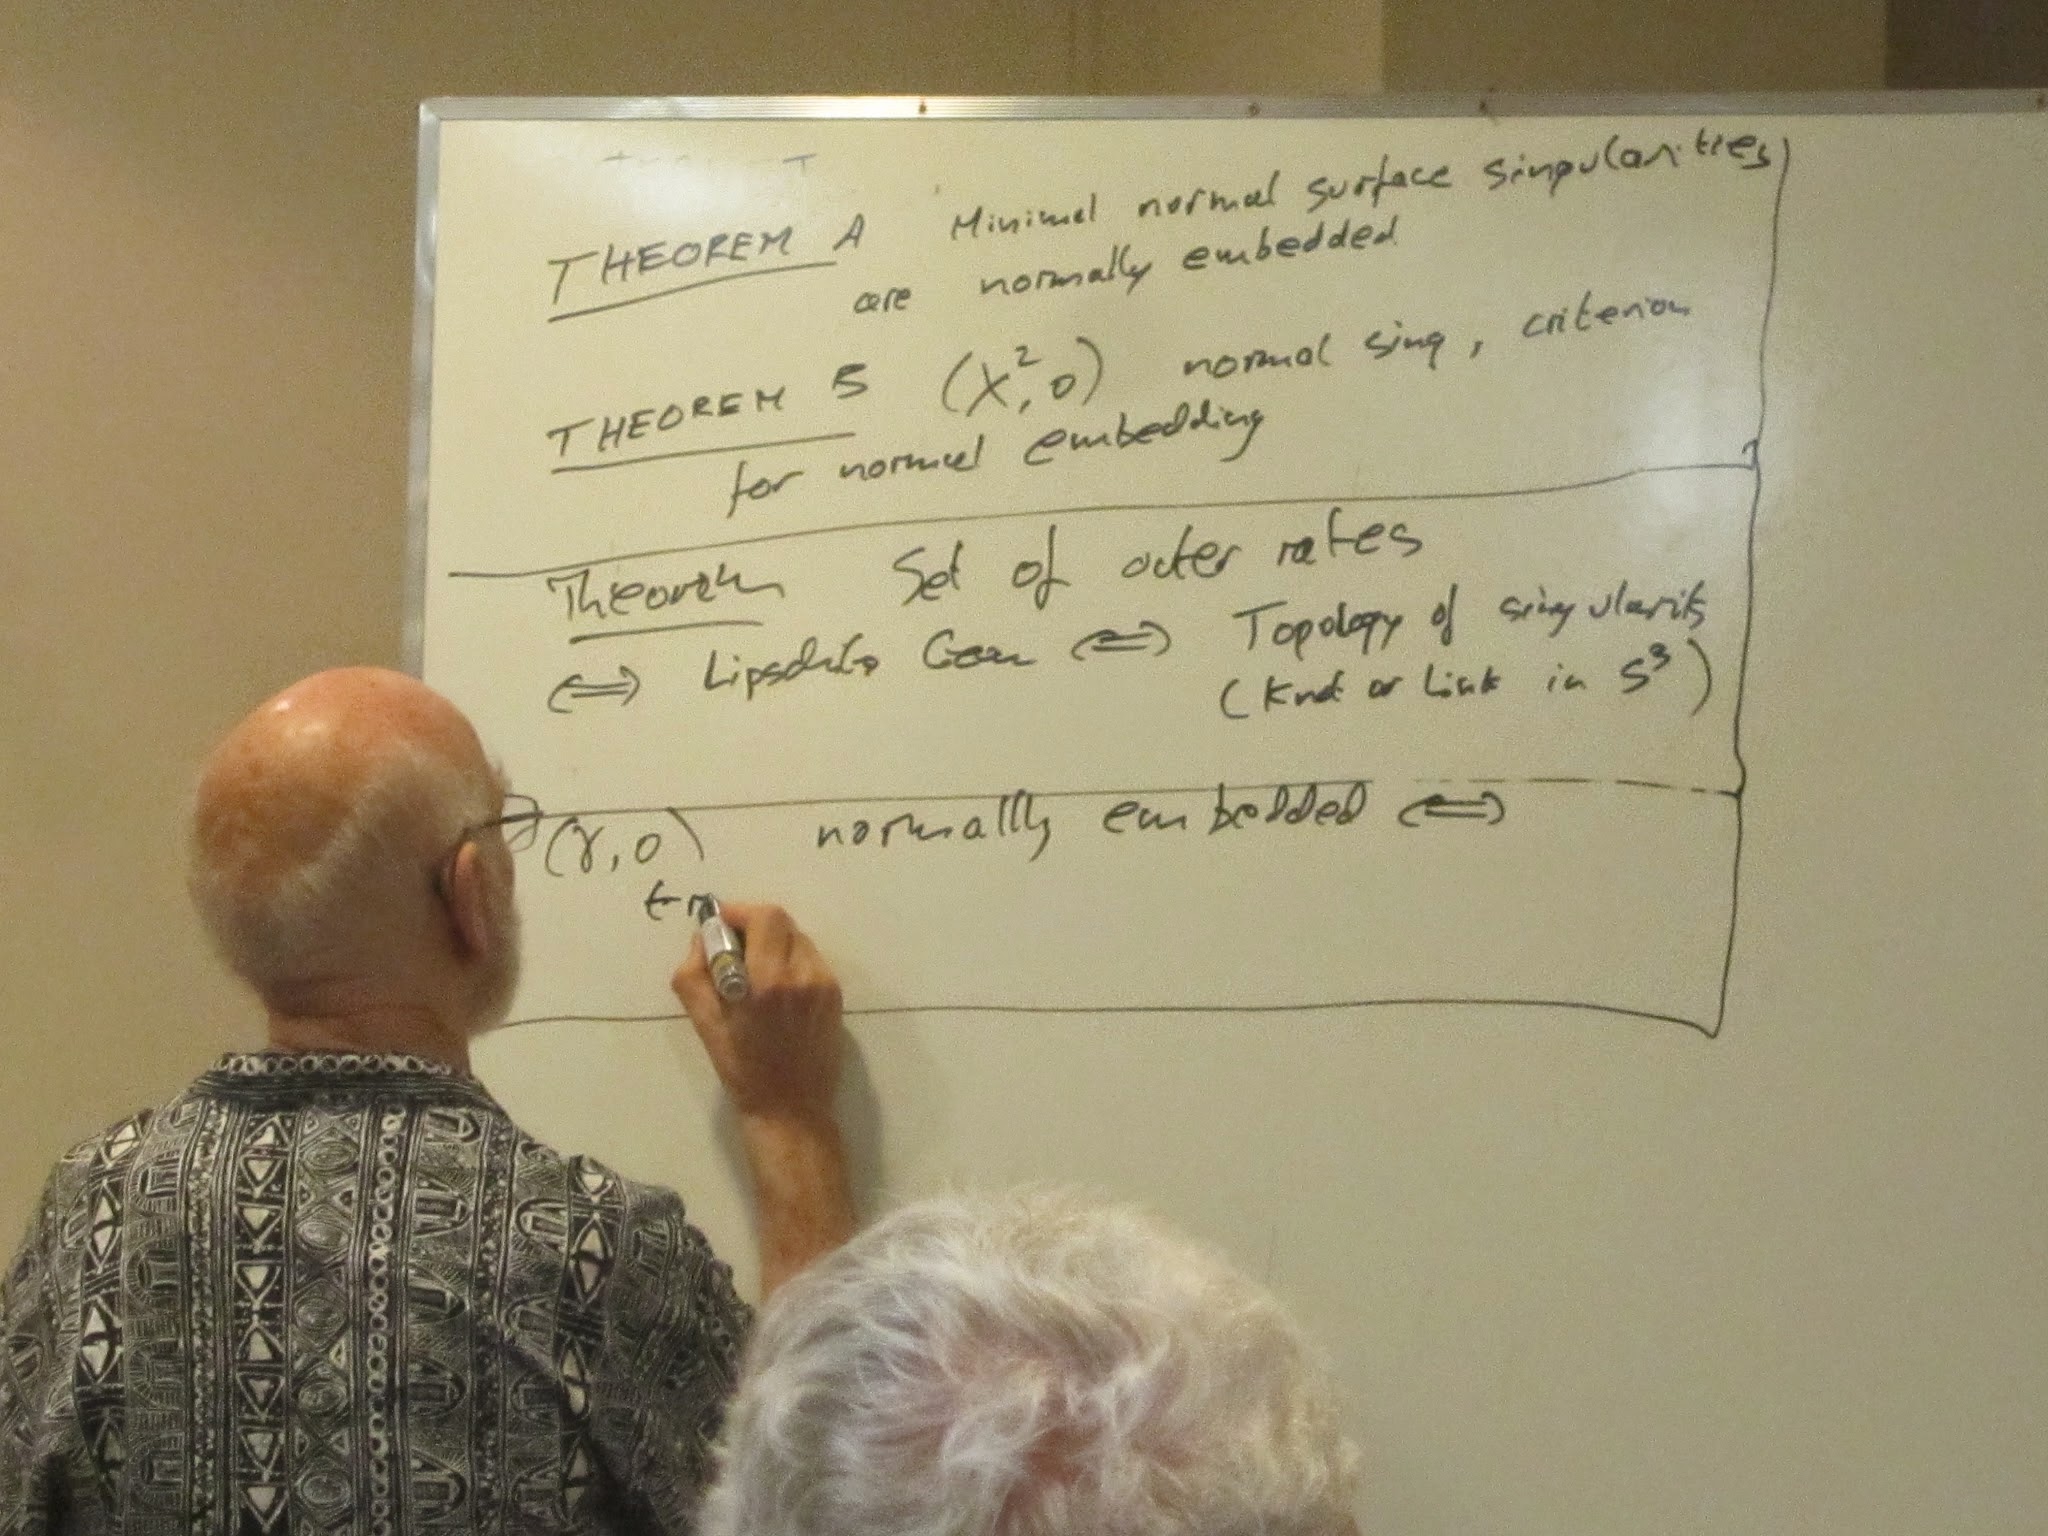 THEOREM A Minimal normal surface singularities
are normally embedded
THEOREM B (X², 0) normal sing, criterion
for normal embedding
Theorem Set of outer rates
⟺ Lipschitz Geom ⟺ Topology of singularity
(Knot or Link in S³)
(γ, 0) normally embedded ⟺